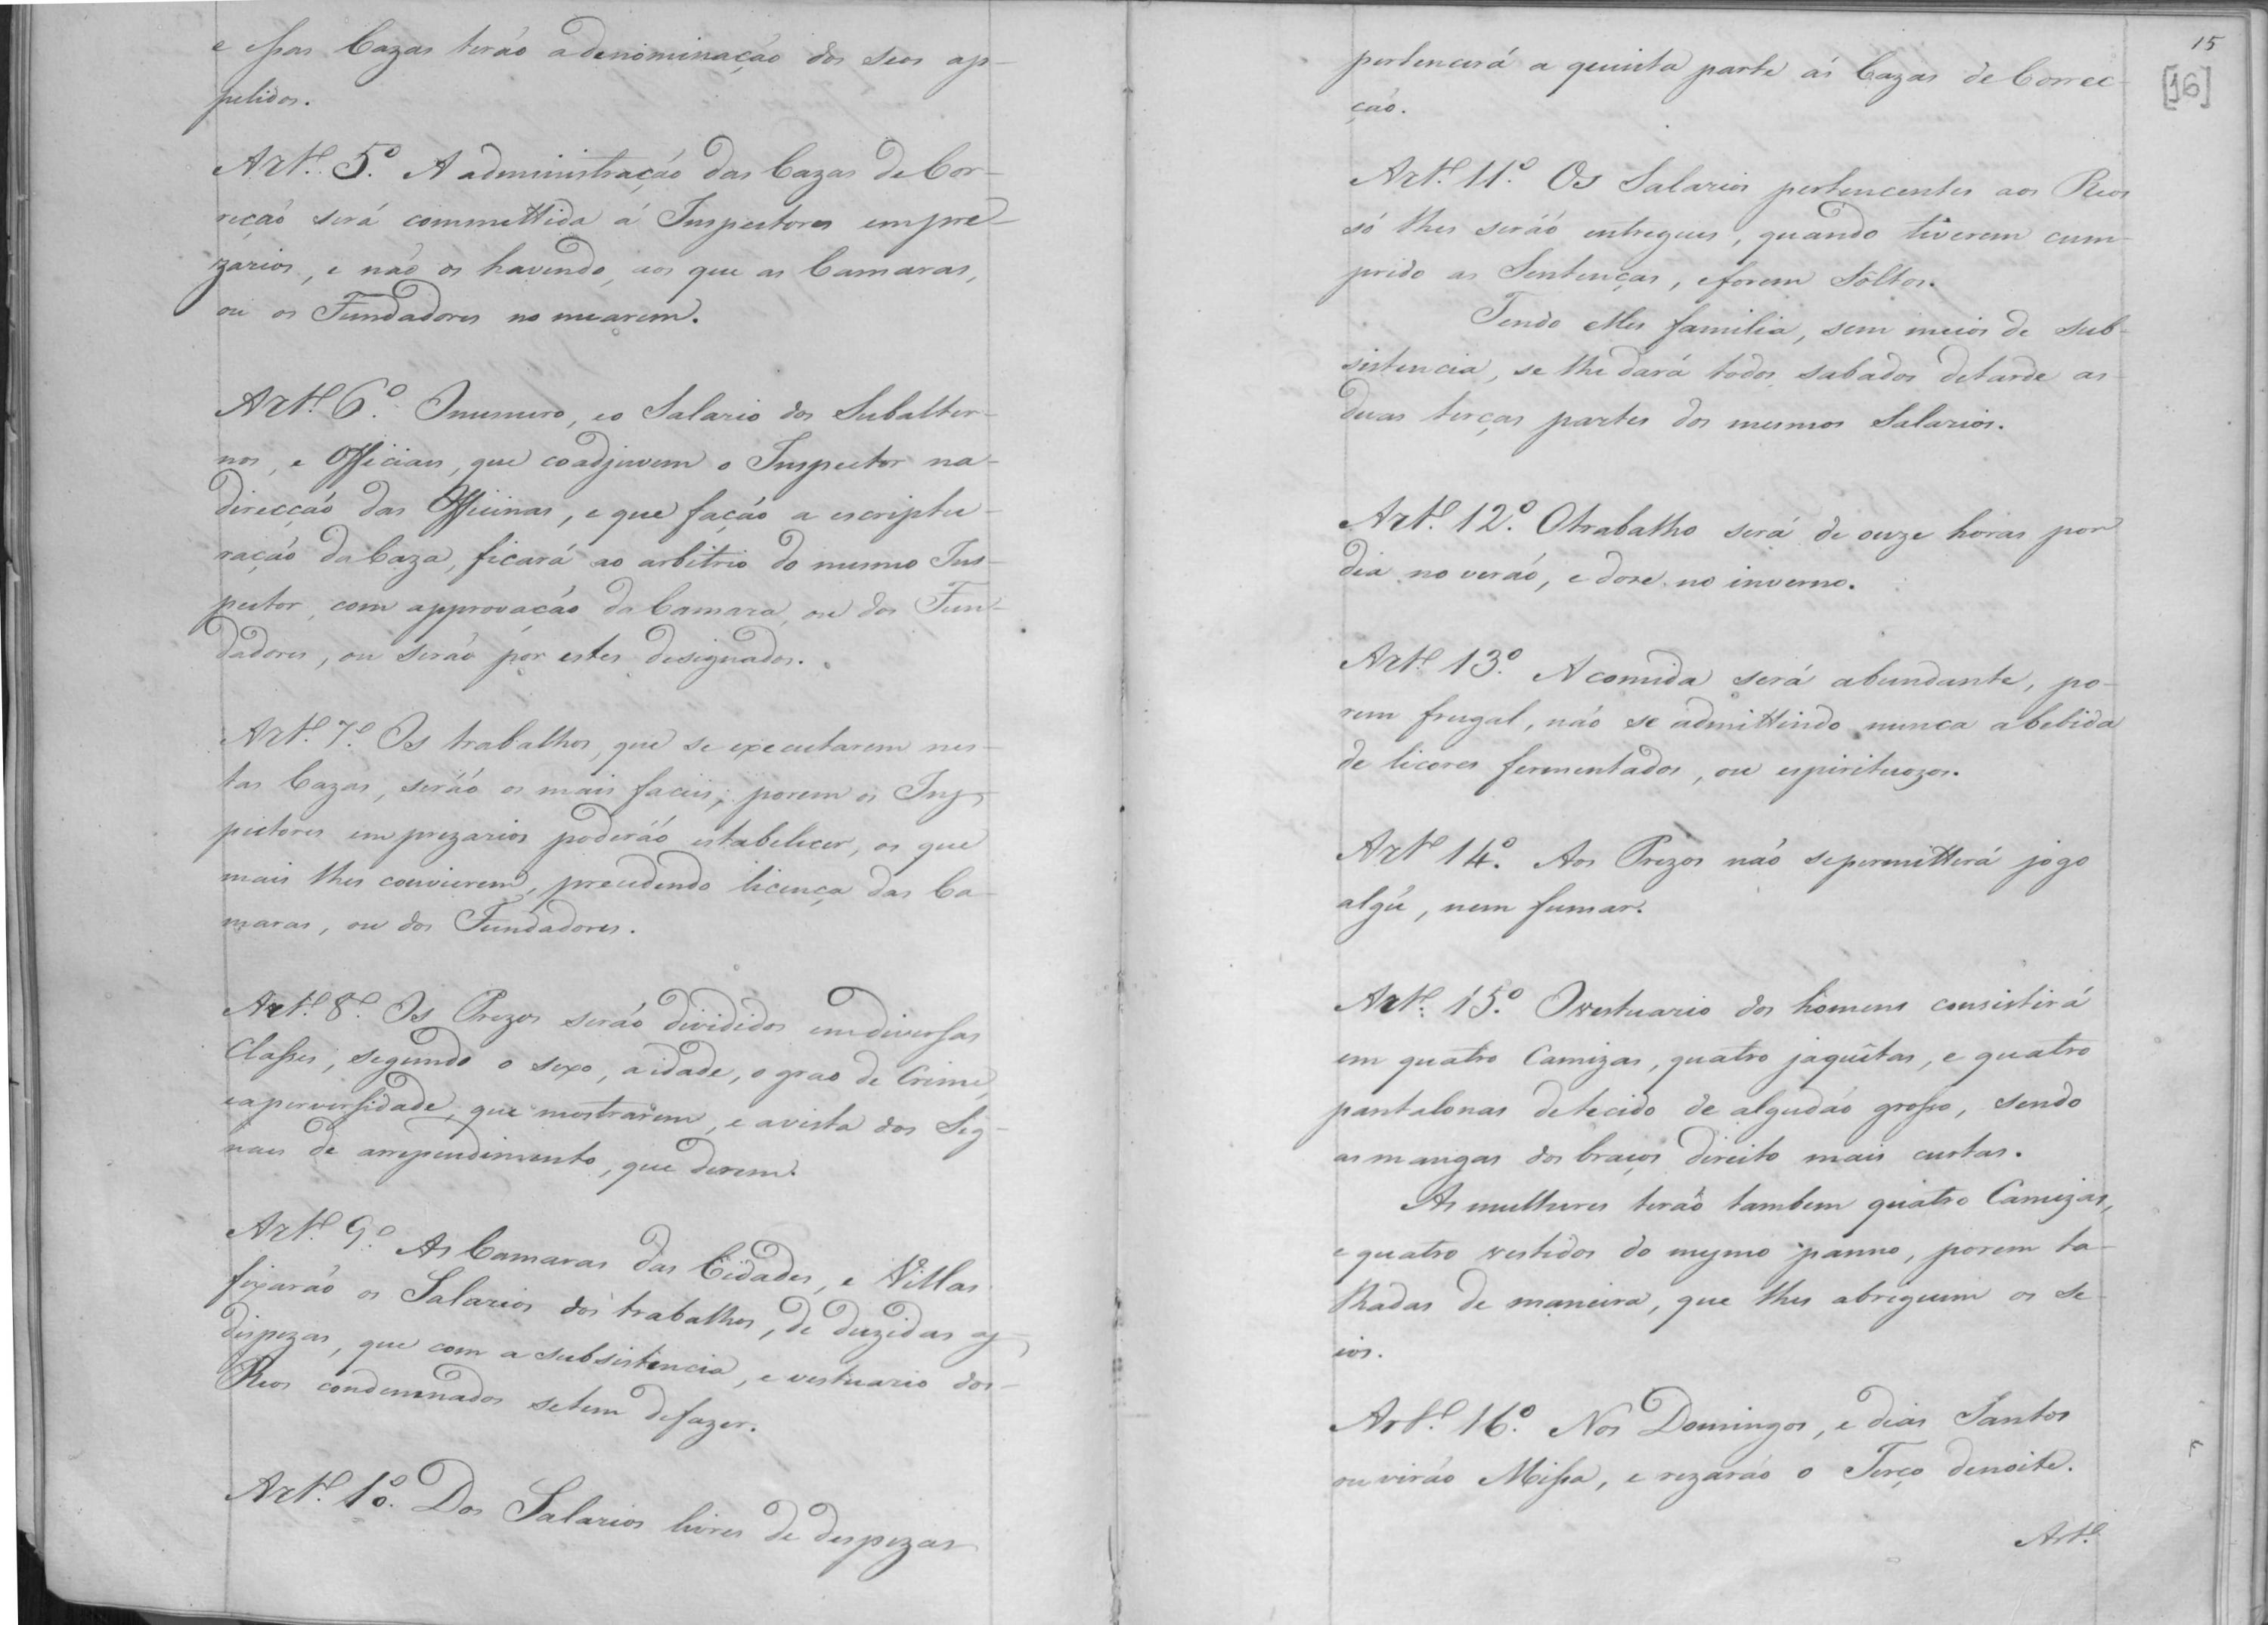 e essas Cazas teráo adenominaçáo dos seos ap-
pelidos.
Artº. 5º. A administraçáo das Cazas de Cor-
reçáo será committida á Inspectores empre-
zarios, e náo os havendo, aos que as Camaras,
ou os Fundadores nomearem.
Artº. 6º. Onumero, eo Salario dos Subalter-
nos, e Officiaes, que coadjuvem o Inspector na-
direcçáo das Officinas, e que façáo a escriptu-
raçáo da Caza, ficará ao arbitrio do mesmo Ins-
pector, com approvaçáo da Camara, ou dos Fun-
dadores, ou seráo por estes designados.
Artº. 7º. Os trabalhos, que se executarem nes-
tas Cazas, seráó os mais faceis; porem os Ins-
pectores emprezarios poderáó estabelecer, os que
mais lhes convierem, precedendo licença das Ca-
maras, ou dos Fundadores.
Artº. 8º. Os Prezos seráo divididos em diversas
Classes, segundo o sexo, a idade, o grao de Crime,
eaperversidade, que mostrarem, e avista dos Sig-
naes de arrependimento, que derem.
Artº. 9º. As Camaras das Cidades, e Villas
fixaráo os Salarios dos trabalhos, deduzidas as
despezas, que com a subsistencia, e vestuario dos-
Reos condemnados setem defazer.
Artº. 1º. Dos Salarios livres de despezas
15
[16]
pertencerá a quinta parte ás Cazas de Correc-
çáo.
Artº. 11º. Os Salarios pertencentes aos Reos
só lhes seráó entregues, quando tiverem cum-
prido as Sentenças, eforem Sôltos.
Tendo elles familia, sem meios de sub-
sistencia, se lhe dará todos sabados detarde as
duas terças partes dos mesmos Salarios.
Artº. 12º. Otrabalho será de onze horas por
dia no veráo, e doze no inverno.
Artº. 13º. A comida será abundante, po-
rem frugal, náo se admittindo nunca abebida
de licores fermentados, ou espirituozos.
Artº 14º. Aos Prezos náo sepermitterá jogo
algũ, nem fumar.
Artº. 15º. Ovestuario dos homens consistirá
em quatro Camizas, quatro jaquêtas, e quatro
pantalonas detecido de algudáo grosso, sendo
asmangas dos braços direito mais curtas.
As mulheres teráõ tambem quatro Camizas,
e quatro vestidos do mesmo panno, porem ta-
lhadas de maneira, que lhes abriguem os se-
ios.
Artº. 16º. Nos Domingos, e dias Santos
ouviráo Missa, e rezaráo o Terço denoite.
Artº.